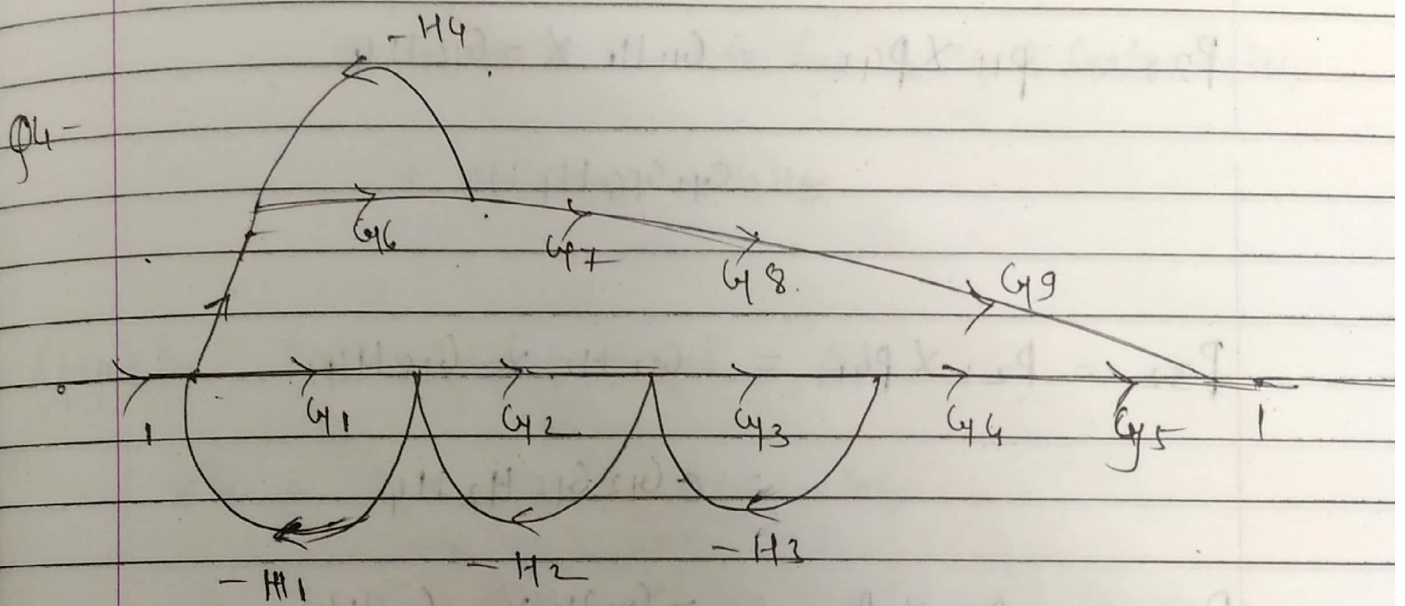 -H4
Q4-
G6 G7 G8 G9
1 G1 G2 G3 G4 G5 1
-H1 -H2 -H3